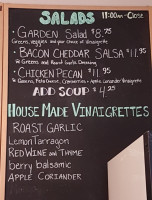 SALADS 11:00am - Close
• GARDEN Salad $8.75
Greens, veggies and your choice of Vinaigrette
• BACON, CHEDDAR SALSA $11.95
w Greens and Roast Garlic Dressing
• CHICKEN PECAN $11.95
w Greens, Feta Cheese, Cranberries + Apple Coriander Vinaigrette
ADD SOUP $4.25
HOUSE MADE VINAIGRETTES
ROAST GARLIC
Lemon Tarragon
RED WINE and THYME
berry balsamic
APPLE CORIANDER